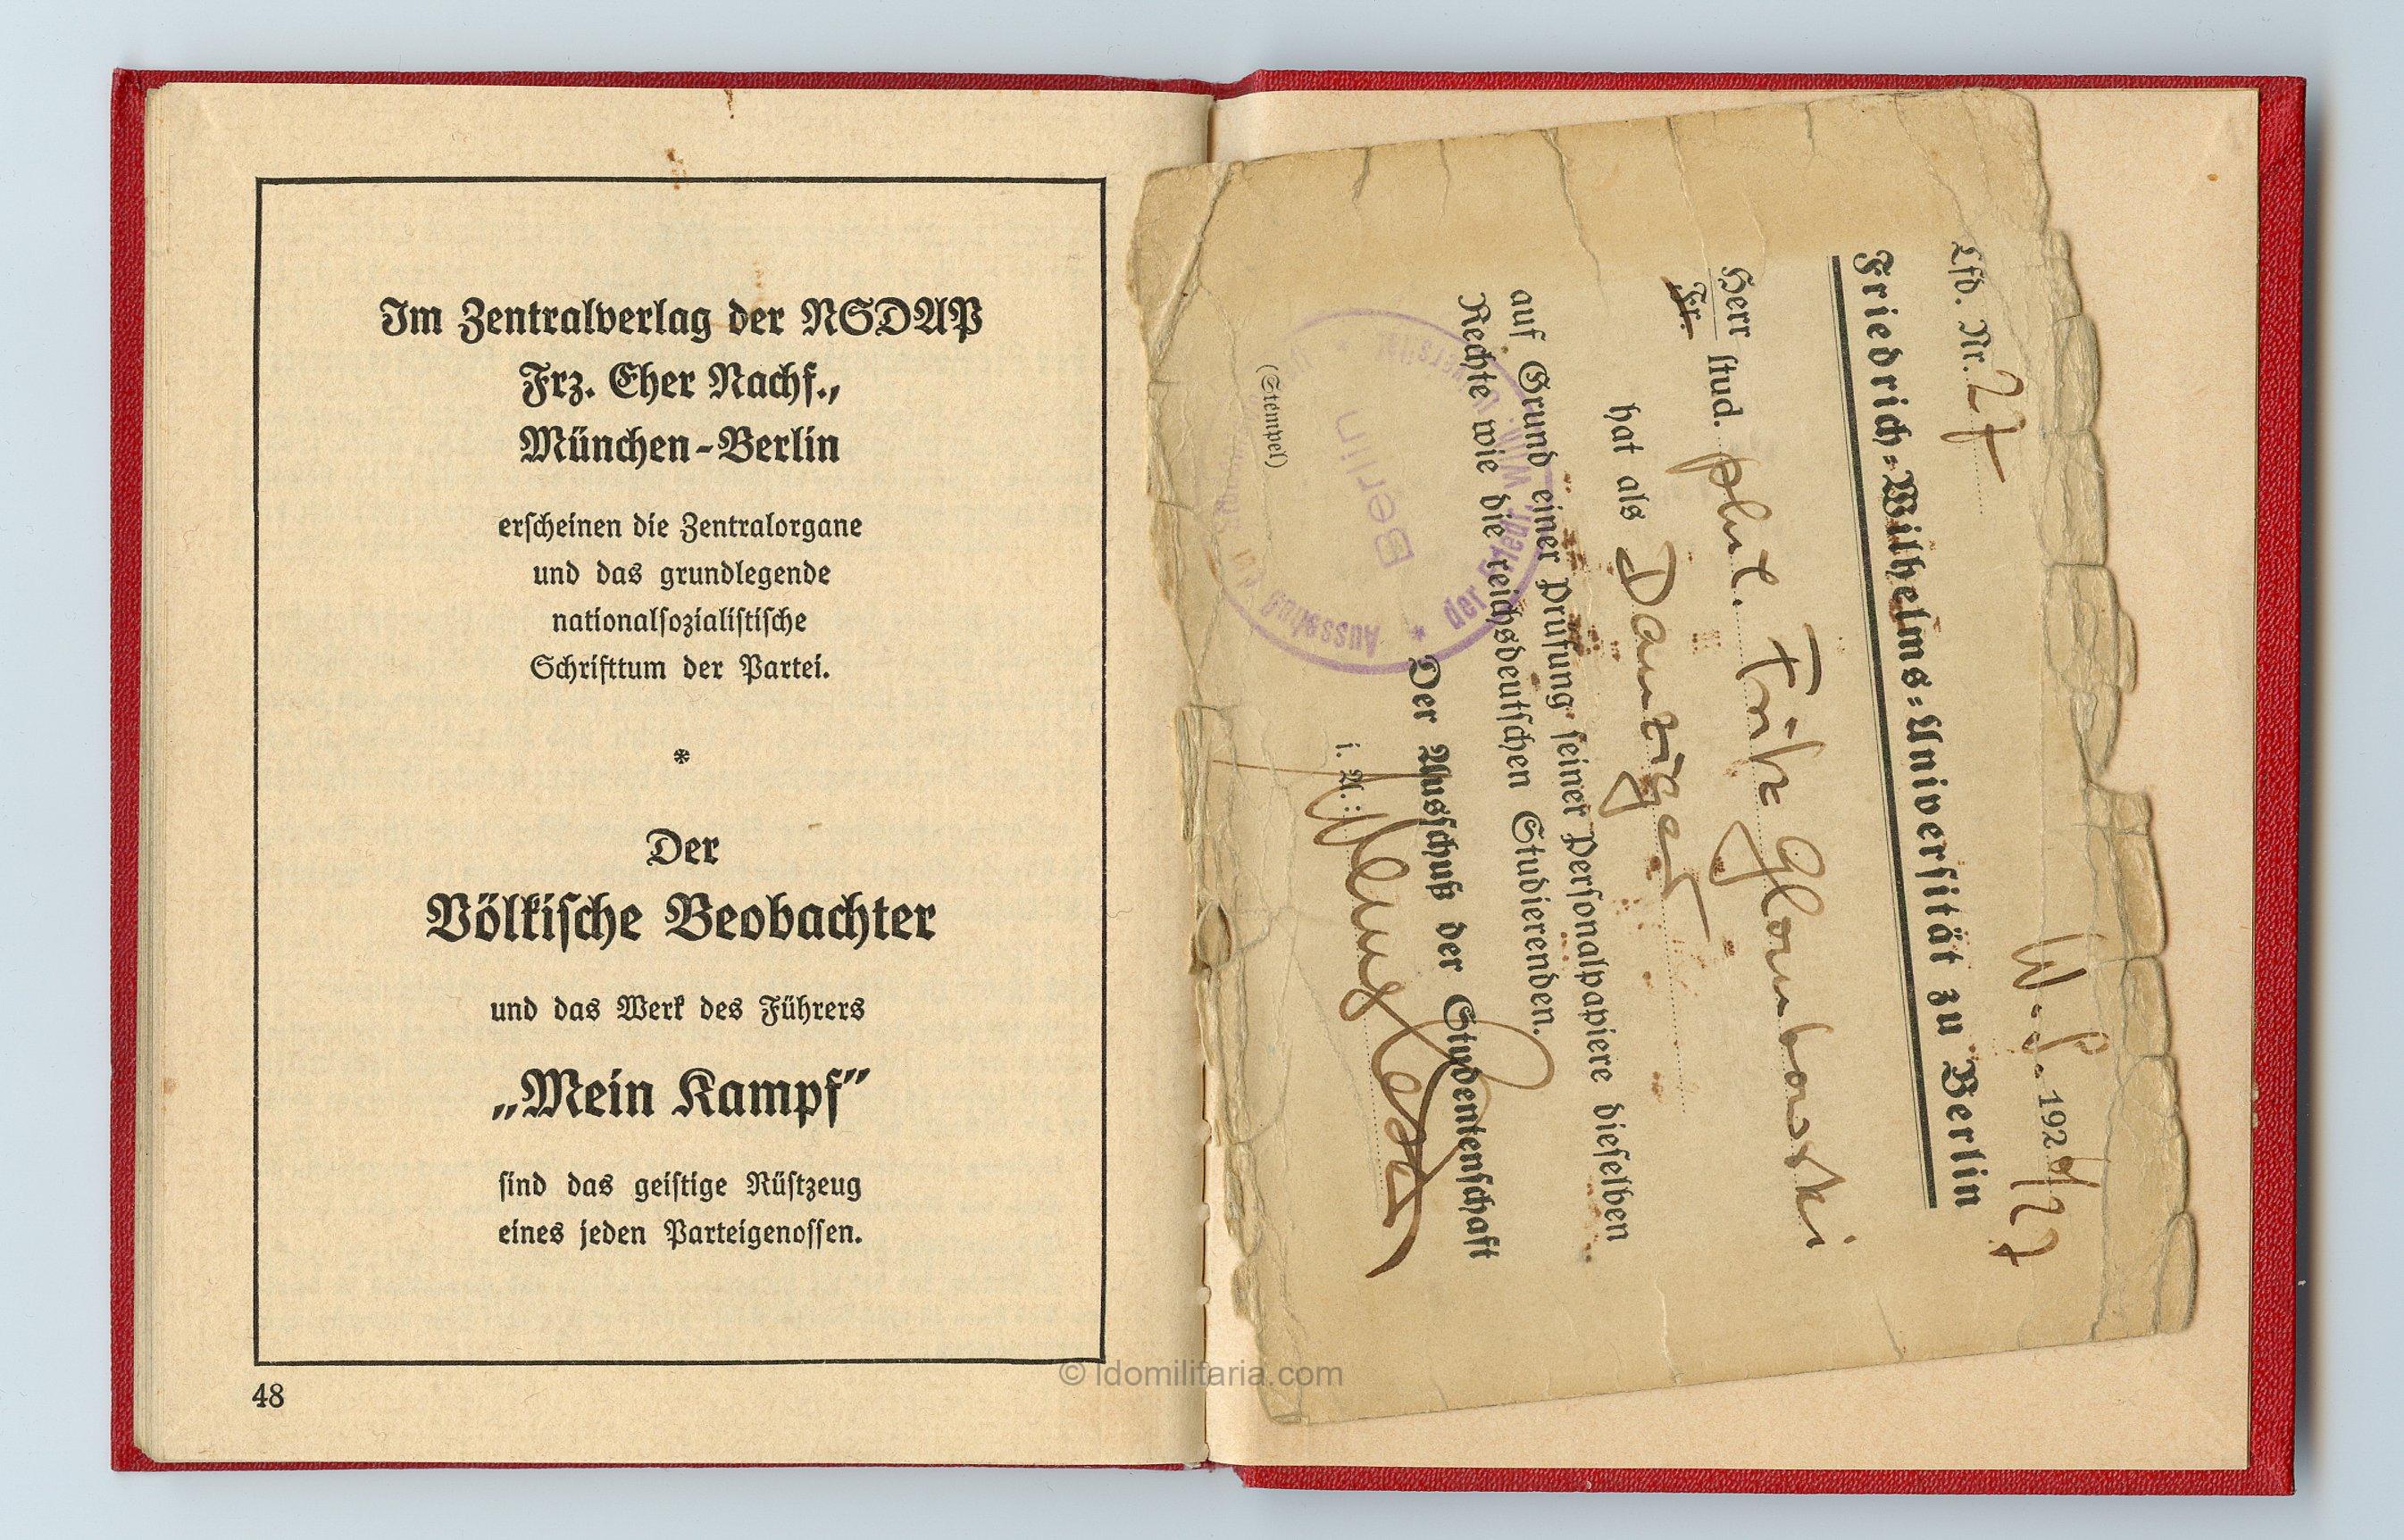 Im Zentralverlag der NSDAP
Frz. Eher Nachf.,
München-Berlin
erscheinen die Zentralorgane
und das grundlegende
nationalsozialistische
Schrifttum der Partei.
*
Der
Völkische Beobachter
und das Werk des Führers
„Mein Kampf”
sind das geistige Rüstzeug
eines jeden Parteigenossen.
48
Lfd. Nr. 27 W.-S. 1926/27
Friedrich-Wilhelms-Universität zu Berlin
Herr
Fr. stud. phil. Fritz Glombowski
hat als Danziger
auf Grund einer Prüfung seiner Personalpapiere dieselben
Rechte wie die reichsdeutschen Studierenden.
Der Ausschuß der Studentenschaft
i. A.:
(Stempel)
Ausschuss der
der Friedr. Wilh. Universität
Berlin
© ldomilitaria.com